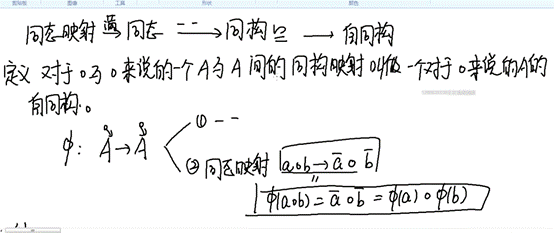 同态映射 满同态 一一→同构≌ → 自同构
定义 对于o与o来说的一个A与A间的同构映射叫做一个对于o来说的A的
自同构。
φ: A→A ① 一一
② 同态映射 a∘b→ā∘b̄
φ(a∘b)=ā∘b̄=φ(a)∘φ(b)